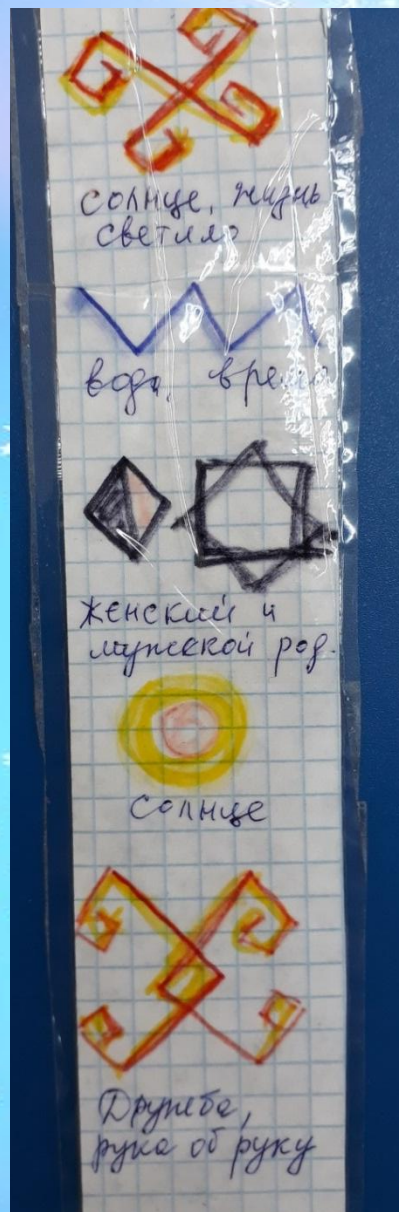 солнце, жизнь
светило
вода, время
женский и
мужской род.
солнце
Дружба,
рука об руку